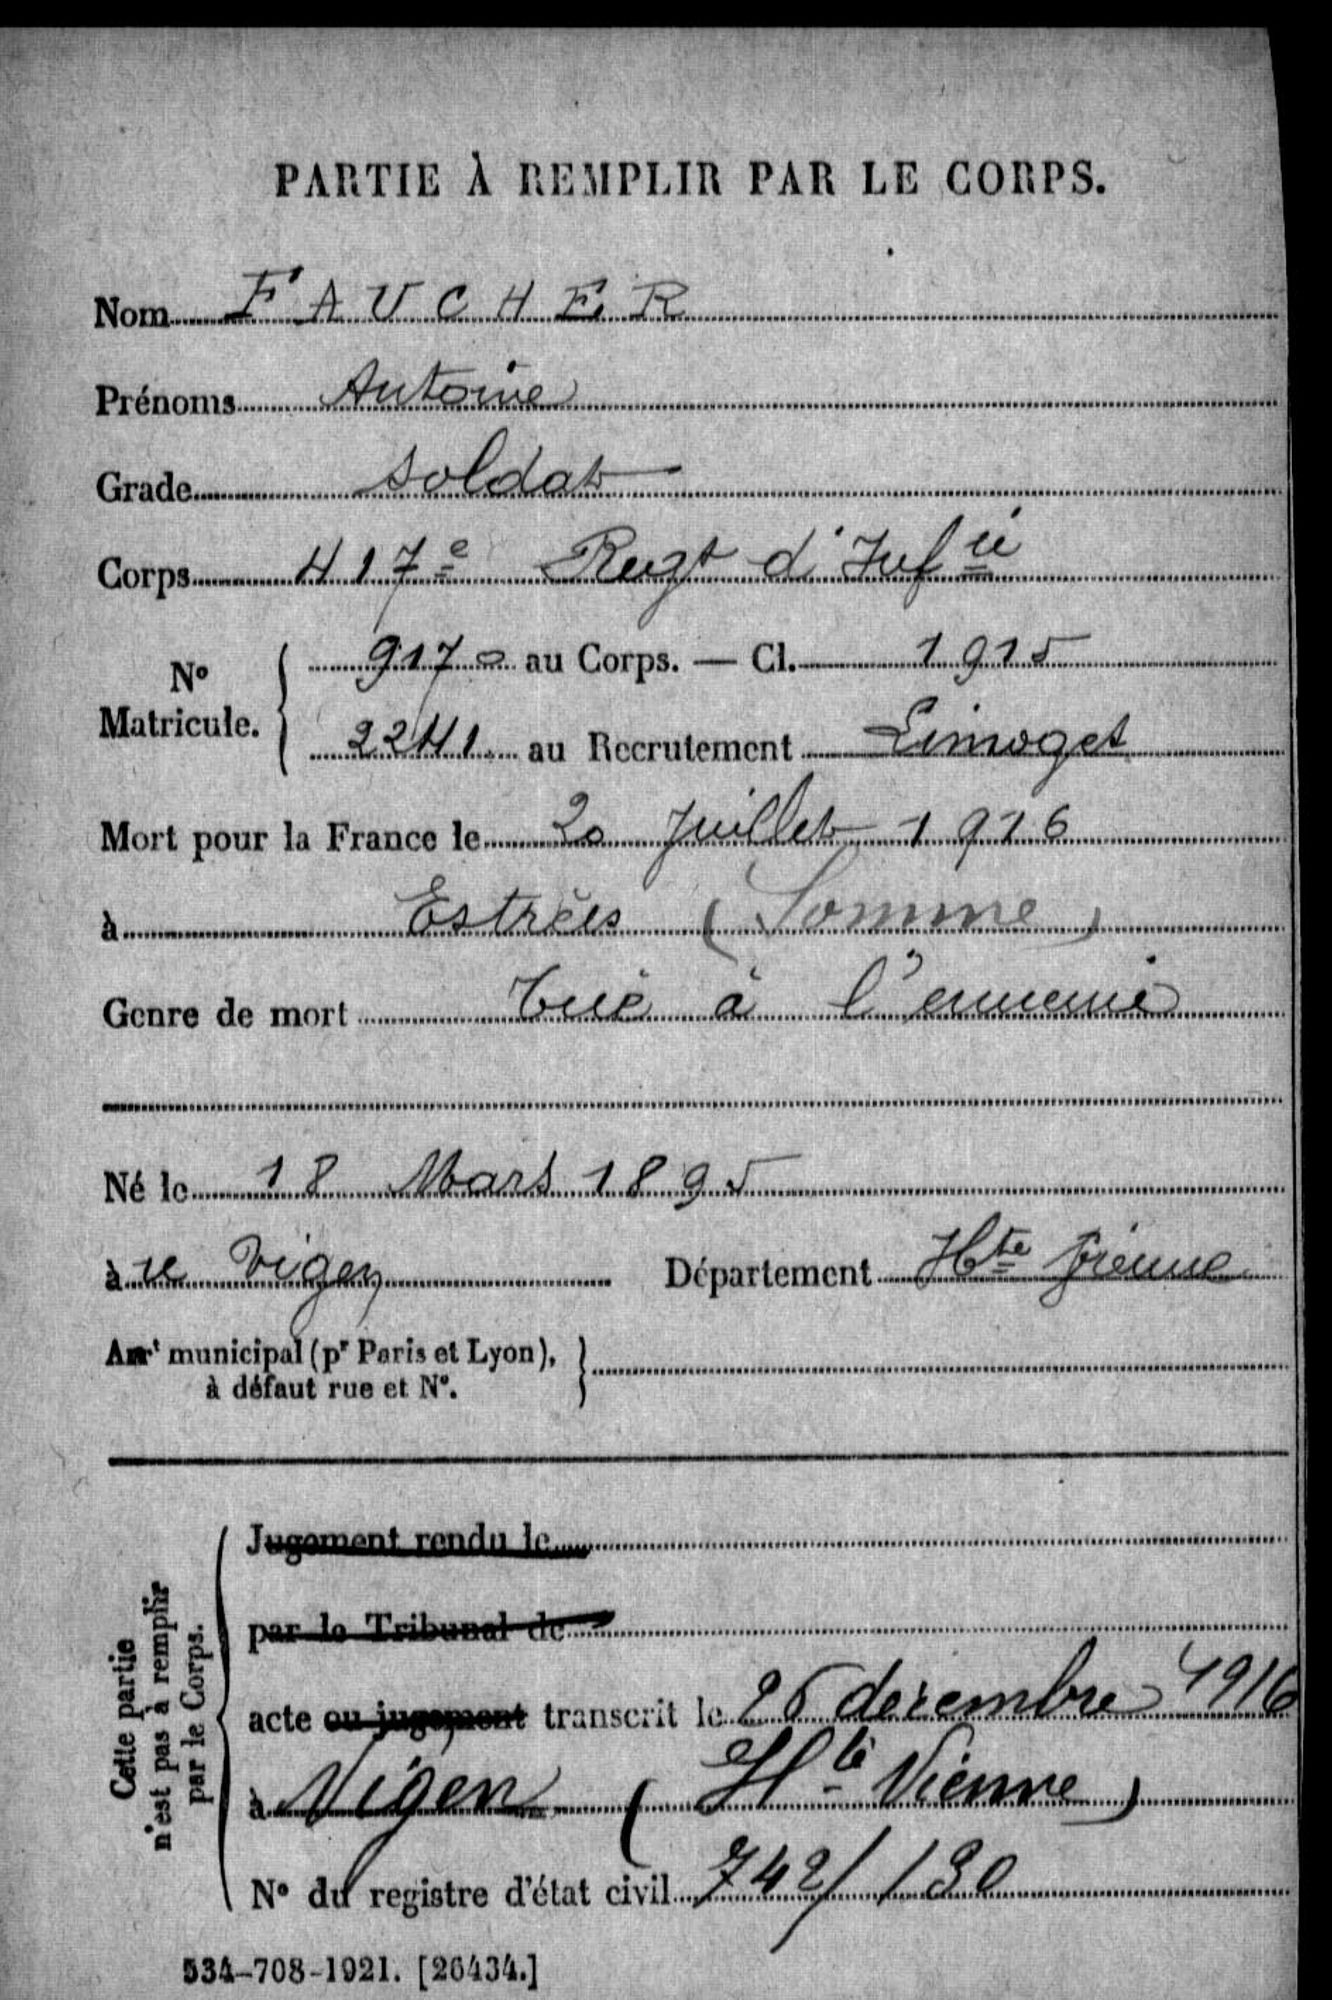 PARTIE À REMPLIR PAR LE CORPS.
Nom FAUCHER
Prénoms Antoine
Grade soldat
Corps 417e Regt d'Infie
No Matricule. { 9170 au Corps. — Cl. 1915
2241 au Recrutement Limoges
Mort pour la France le 20 Juillet 1916
à Estrées (Somme)
Genre de mort Tué à l'ennemi
Né le 18 Mars 1895
à le Vigen Département Hte Vienne
Arrt municipal (pr Paris et Lyon), }
à défaut rue et No.
Cette partie
n'est pas à remplir
par le Corps.
Jugement rendu le
par le Tribunal de
acte ou jugement transcrit le 26 décembre 1916
à Vigen (Hte Vienne)
No du registre d'état civil 742/130
534-708-1921. [26434.]